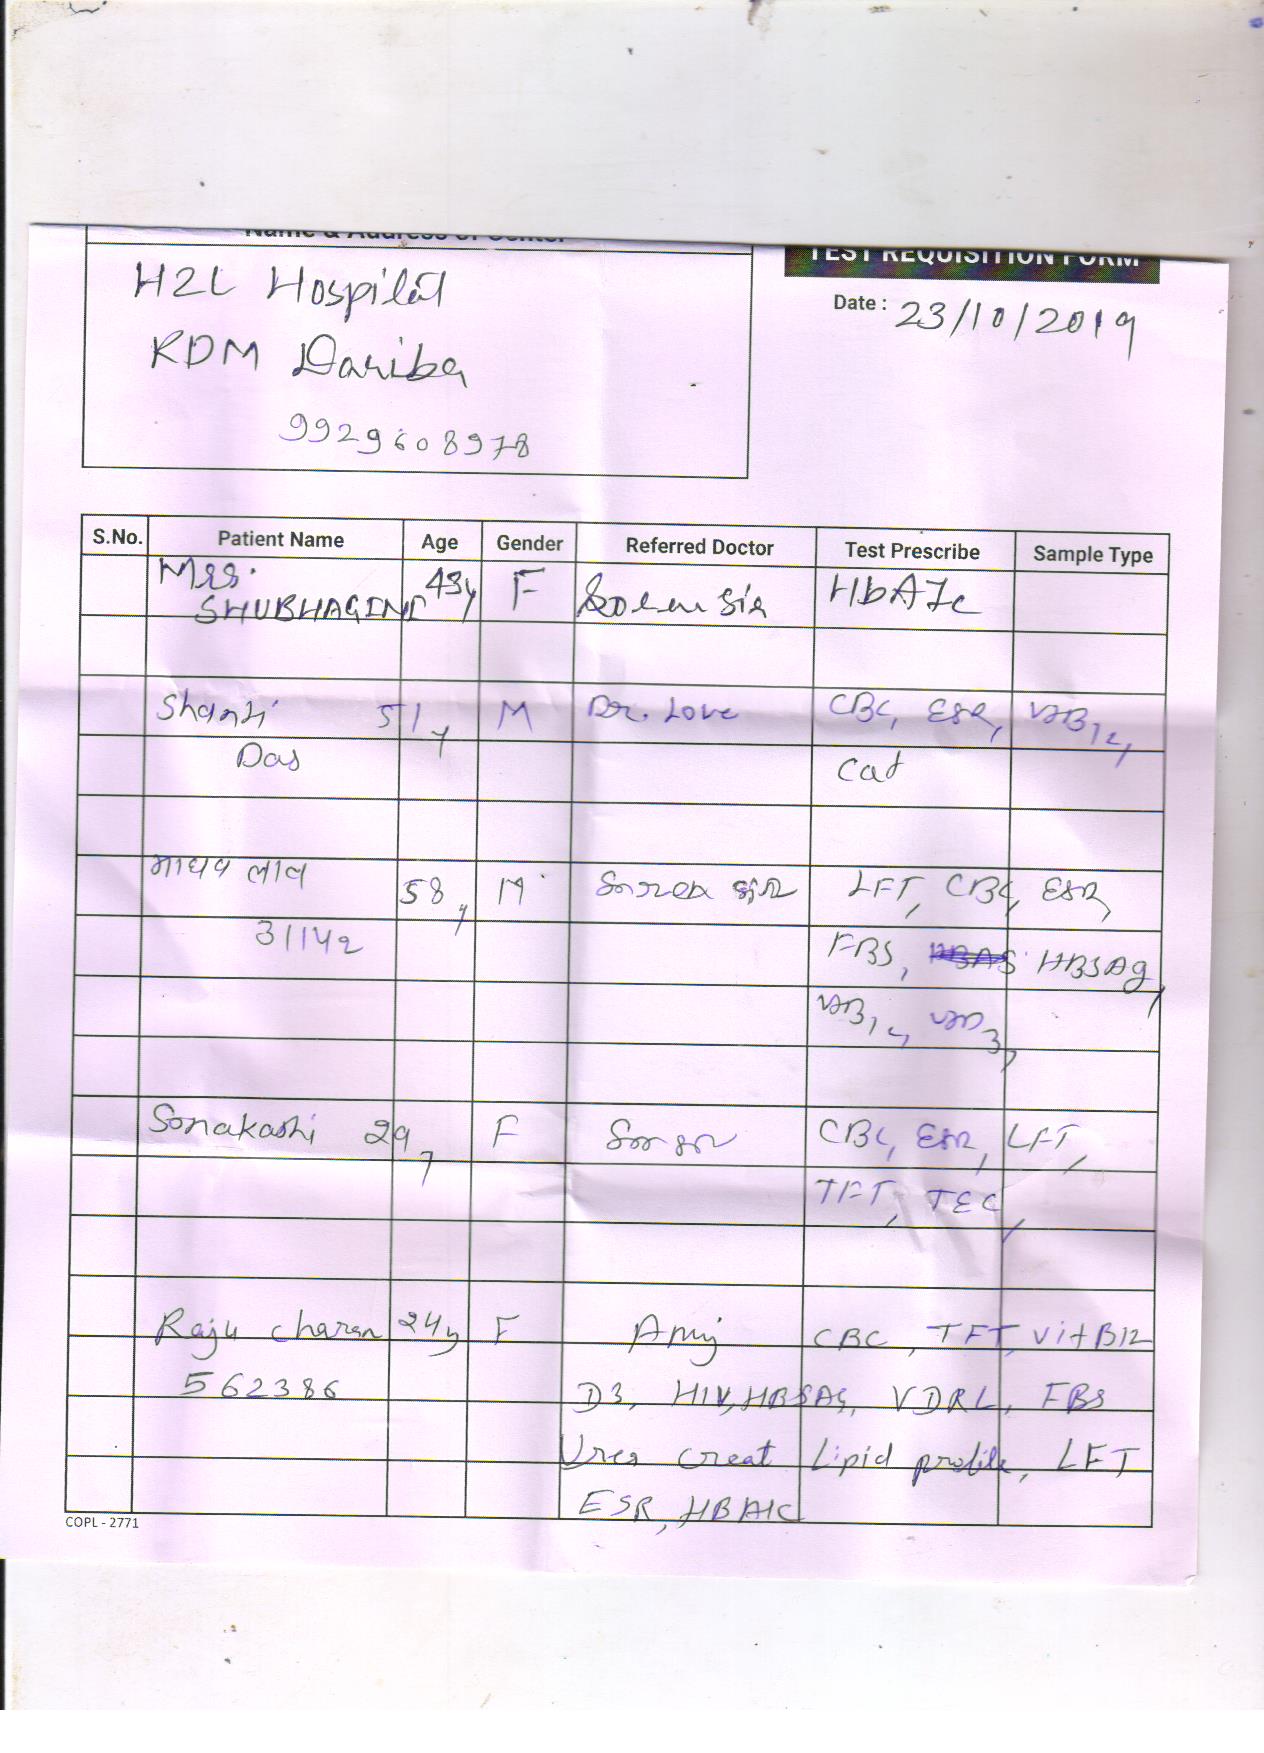 Name & Address of Center
TEST REQUISITION FORM
H2L Hospital
RDM Dariba
9929608978
Date : 23/10/2019
S.No. Patient Name Age Gender Referred Doctor Test Prescribe Sample Type
Mrs. 43y F Sir HbA1c
SHUBHAGINI
Shanti 51y M Dr. Love CBC, ESR, VitB12,
Das Cat
माधव लाल 58y M LFT, CBC, ESR,
31142 FBS, HBSAg,
VitB12, VitD3,
Sonakashi 29y F CBC, ESR, LFT,
TFT, TEC,
Raju charan 24y F Amij CBC, TFT, Vit B12
562386 D3, HIV, HBSAG, VDRL, FBS
Urea creat Lipid profile, LFT
ESR, HBA1C
COPL - 2771